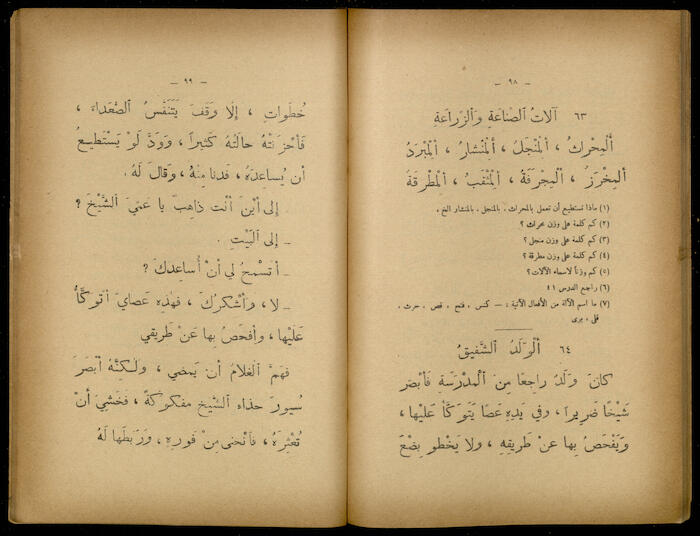 – ٩٨ –
٦٣ آلاتُ الصِّناعَةِ وَالزِّراعَةِ
أَلْمِحْراثُ ، أَلْمِنْجَلُ ، أَلْمِنْشارُ ، أَلْمِبْرَدُ
أَلْمِخْرَزُ ، أَلْمِجْرَفَةُ ، أَلْمِثْقَبُ ، أَلْمِطْرَقَةُ
(١) ماذا تستطيع أن تعمل بالمحراث ، بالمنجل ، بالمنشار الخ .
(٢) كم كلمة على وزن محراث ؟
(٣) كم كلمة على وزن منجل ؟
(٤) كم كلمة على وزن مطرقة ؟
(٥) كم وزناً لاسماء الآلات ؟
(٦) راجع الدرس ٤١
(٧) ما اسم الآلة من الأفعال الآتية : — كنس ، فتح ، قص ، حرث ،
قلى ، برى
٦٤ أَلْوَلَدُ الشَّفِيقُ
كانَ وَلَدٌ راجِعاً مِنَ الْمَدْرَسَةِ فَأَبْصَرَ
شَيْخاً ضَرِيراً ، وَفي يَدِهِ عَصاً يَتَوَكَّأُ عَلَيْها ،
وَيَفْحَصُ بِها عَنْ طَرِيقِهِ ، وَلا يَخْطُو بِضْعَ
– ٩٩ –
خُطُواتٍ ، إِلّا وَقَفَ يَتَنَفَّسُ الصُّعَداءَ ،
فَأَحْزَنَتْهُ حالَتُهُ كَثِيراً ، وَوَدَّ لَوْ يَسْتَطِيعُ
أَن يُساعِدَهُ ، فَدَنا مِنْهُ ، وَقالَ لَهُ .
. إِلى أَيْنَ أَنْتَ ذاهِبٌ يا عَمِّيَ الشَّيْخَ ؟
– إِلى الْبَيْتِ .
– أَتَسْمَحُ لِي أَنْ أُساعِدَكَ ؟
– لا ، وَأَشْكُرُكَ ، فَهٰذِهِ عَصايَ أَتَوَكَّأُ
عَلَيْها ، وَأَفْحَصُ بِها عَنْ طَرِيقي
فَهَمَّ الْغُلامُ أَنْ يَمْضِي ، وَلٰكِنَّهُ أَبْصَرَ
سُيُورَ حِذاءِ الشَّيْخِ مَفْكُوكَةً ، فَخَشِيَ أَنْ
تُعْثِرَهُ ، فَانْحَنى مِنْ فَوْرِهِ ، وَرَبَطَها لَهُ